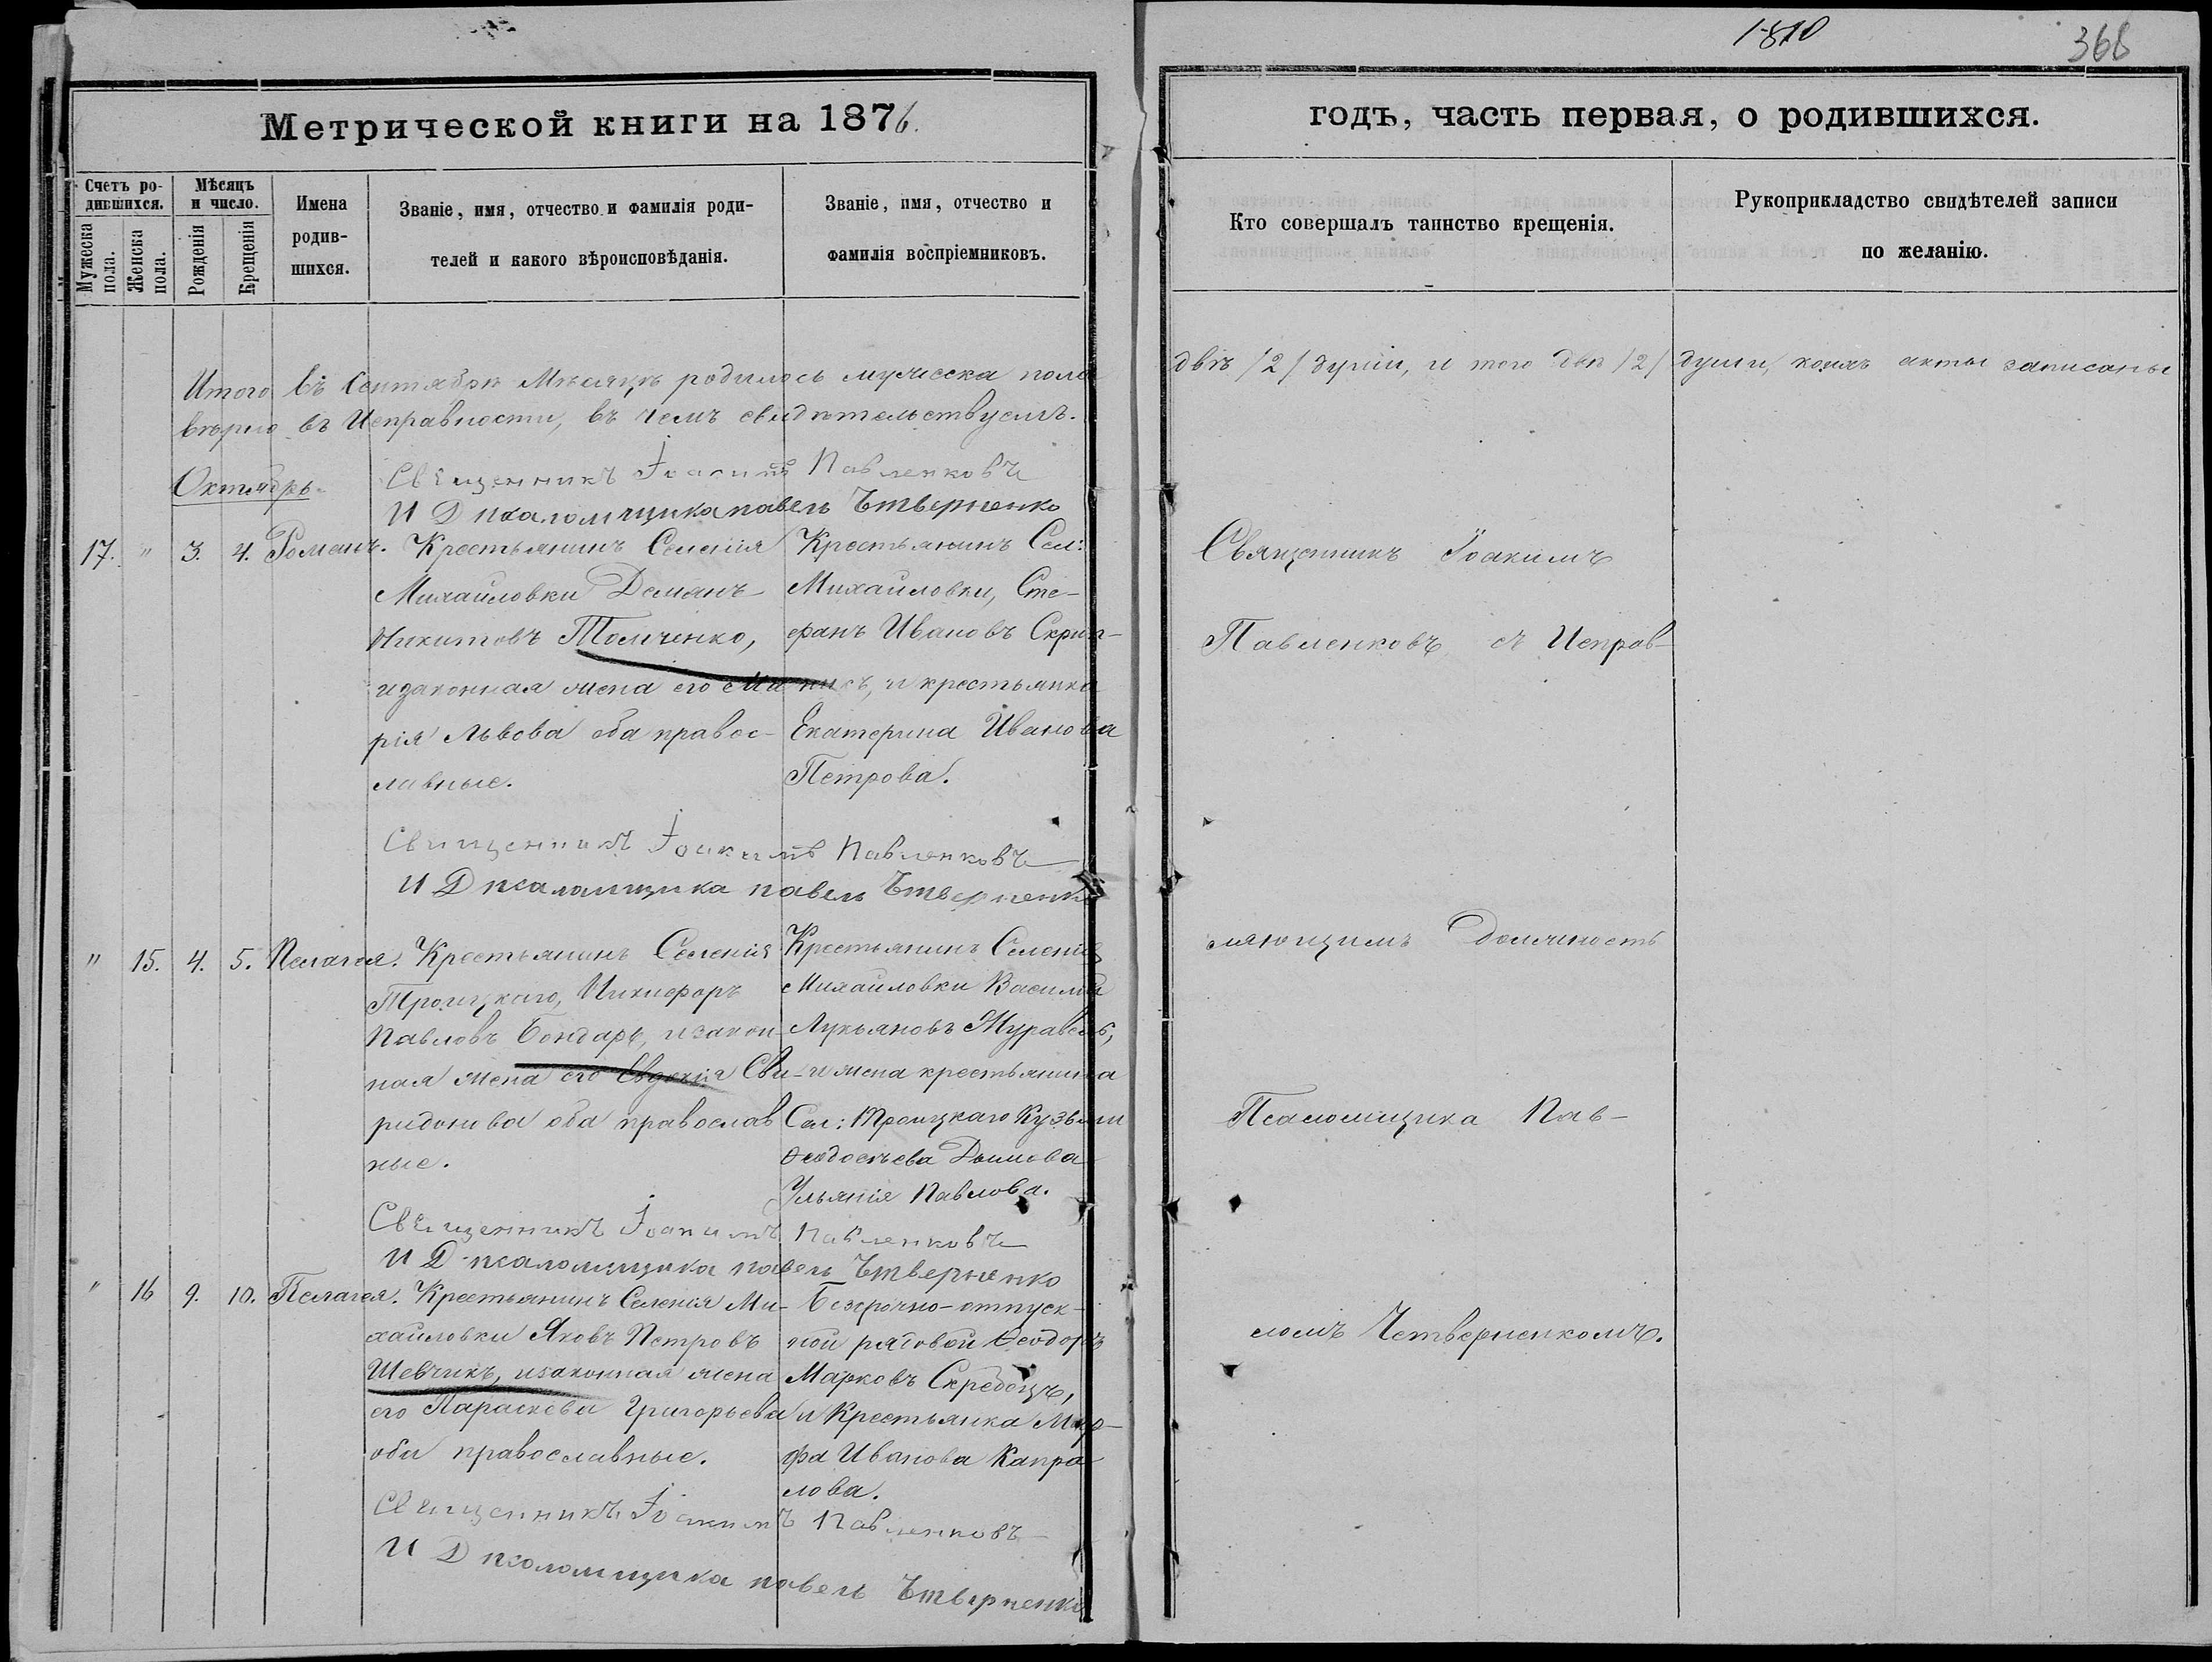 1870
368
Метрической книги на 1876.
годъ, часть первая, о родившихся.
Счетъ ро-
дившихся.
Мужеска
пола.
Женска
пола.
Мѣсяцъ
и число.
Рожденія
Крещенія
Имена
родив-
шихся.
Званіе, имя, отчество и фамилія роди-
телей и какого вѣроисповѣданія.
Званіе, имя, отчество и
фамилія воспріемниковъ.
Кто совершалъ таинство крещенія.
Рукоприкладство свидѣтелей записи
по желанію.
Итого въ Сентябрѣ Мѣсяцѣ родилось мужеска пола двѣ /2/ души, и того двѣ /2/ души, коихъ акты записаны
вѣрно въ Исправности, въ чемъ свидѣтельствуемъ.
Октябрь.
Священникъ Іоакимъ Павленковъ
И Д псаломщика павелъ Ѣтверненко
17. " 3. 4. Романъ.
Крестьянинъ Селенія
Михайловки Демьянъ
Никитовъ Томченко,
и законная жена его Ма-
рія Львова оба правос-
лавные.
Крестьянинъ Сел:
Михайловки, Сте-
фанъ Ивановъ Скрип-
никъ, и крестьянка
Екатерина Иванова
Петрова.
Священникъ Іоакимъ Павленковъ
И Д псаломщика павелъ Ѣтверненко
" 15. 4. 5. Пелагея.
Крестьянинъ Селенія
Троицкаго, Никифоръ
Павловъ Бондарь, и закон-
ная жена его Евдокія Сви-
ридонова оба православ
ные.
Крестьянинъ Селенія
Михайловки Василій
Лукьяновъ Журавель,
и жена крестьянина
Сел: Троицкаго Кузьмы
Ѳеодосьева Дымова
Ульянія Павлова.
Священникъ Іоакимъ Павленковъ
И Д псаломщика павелъ Ѣтверненко
" 16 9. 10. Пелагея.
Крестьянинъ Селенія Ми-
хайловки Яковъ Петровъ
Шевчикъ, и законная жена
его Параскева Григорьева
оба православные.
Безсрочно-отпуск-
ной рядовой Ѳеодоръ
Марковъ Скребецъ,
и Крестьянка Мар-
фа Иванова Капра-
лова.
Священникъ Іоакимъ Павленковъ
И Д псаломщика павелъ Ѣтверненко
Священникъ Іоакимъ
Павленковъ съ Исправ-
ляющимъ Должность
Псаломщика Пав-
ломъ Четверненкомъ.